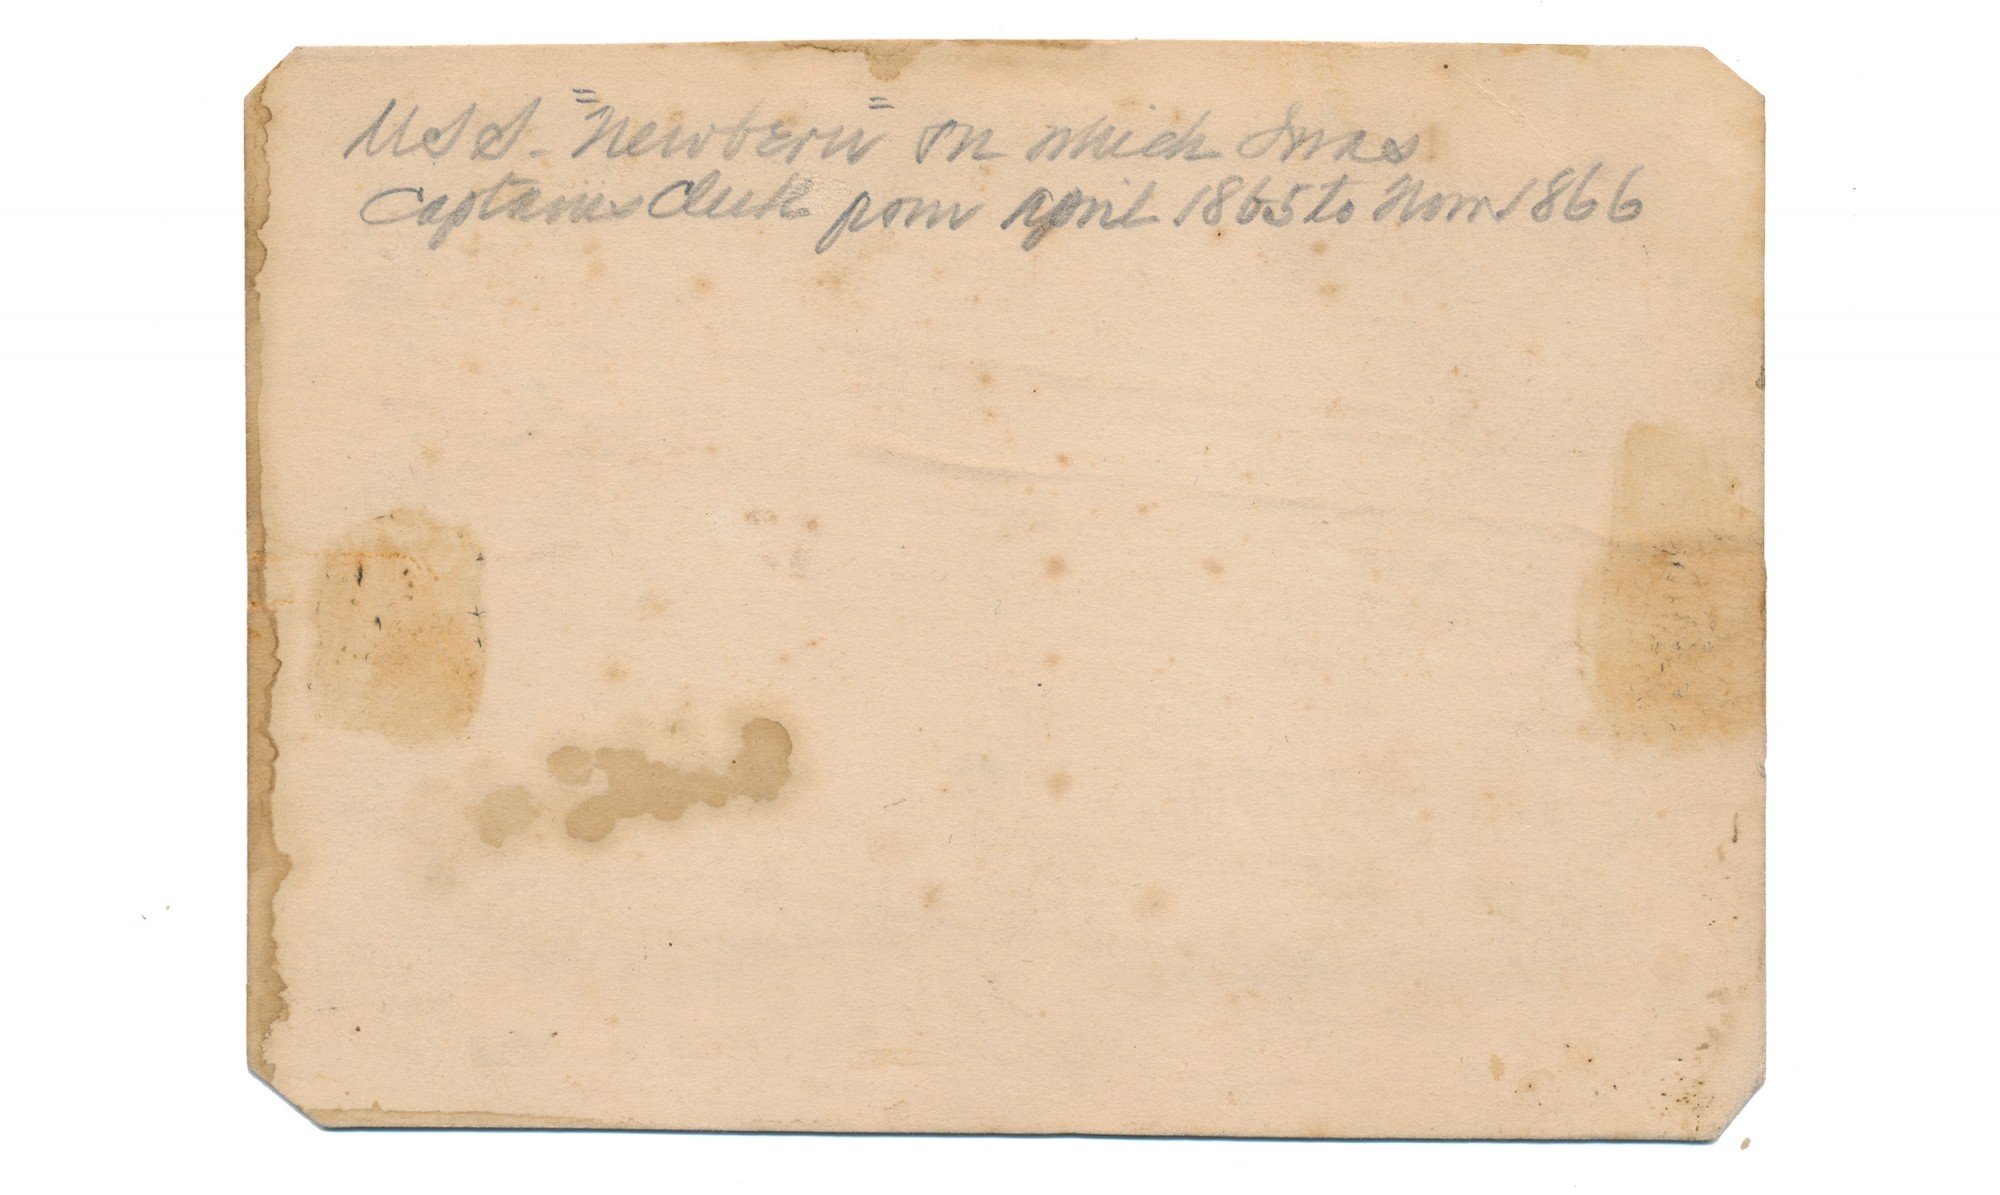 USS. "Newbern" on which I was
Captains Clerk from April 1865 to Nov. 1866